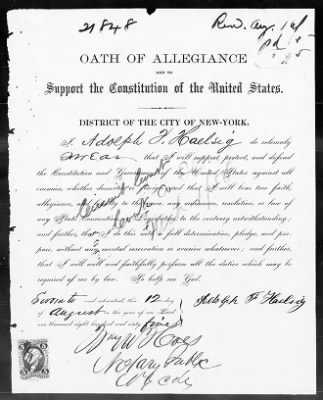 21848
Rec'd. Aug. 14/
Pd
OATH OF ALLEGIANCE
AND TO
Support the Constitution of the United States.
DISTRICT OF THE CITY OF NEW-YORK.
I, Adolph F. Haelsig do solemnly
swear that I will support, protect, and defend
the Constitution and Government of the United States against all
enemies, whether domestic or foreign, and that I will bear true faith,
allegiance, and loyalty to the same, any ordinance, resolution, or law of
any State Convention or Legislature to the contrary notwithstanding;
and further, that I do this with a full determination, pledge, and pur-
pose, without any mental reservation or evasion whatsoever; and further,
that I will well and faithfully perform all the duties which may be
required of me by law. So help me God.
Sworn to and subscribed this 12 day
of August in the year of our Lord
one thousand eight hundred and sixty five
Adolph F Haelsig
Notary Public
N.Y. City